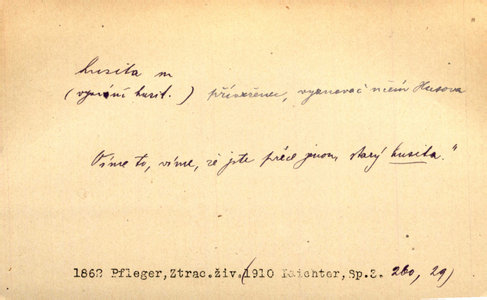 husita m
(vyznání husit.) přívrženec, vyznavač učení Husova
Víme to, víme, že jste přece jenom starý husita."
1862 Pfleger, Ztrac.živ.(1910 Laichter, Sp.3. 260, 29)